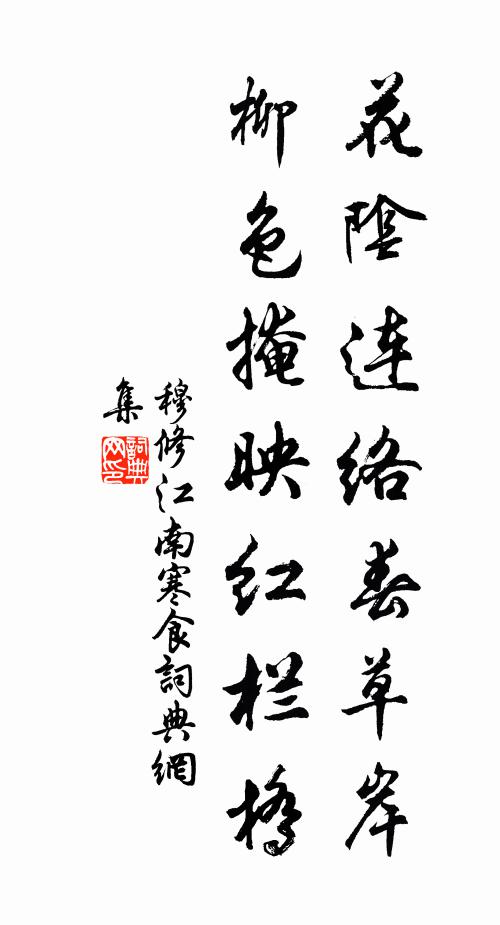 花陰連絡春草岸
柳色掩映紅栏橋
穆修江南寒食詞典網
集
詞典
网印